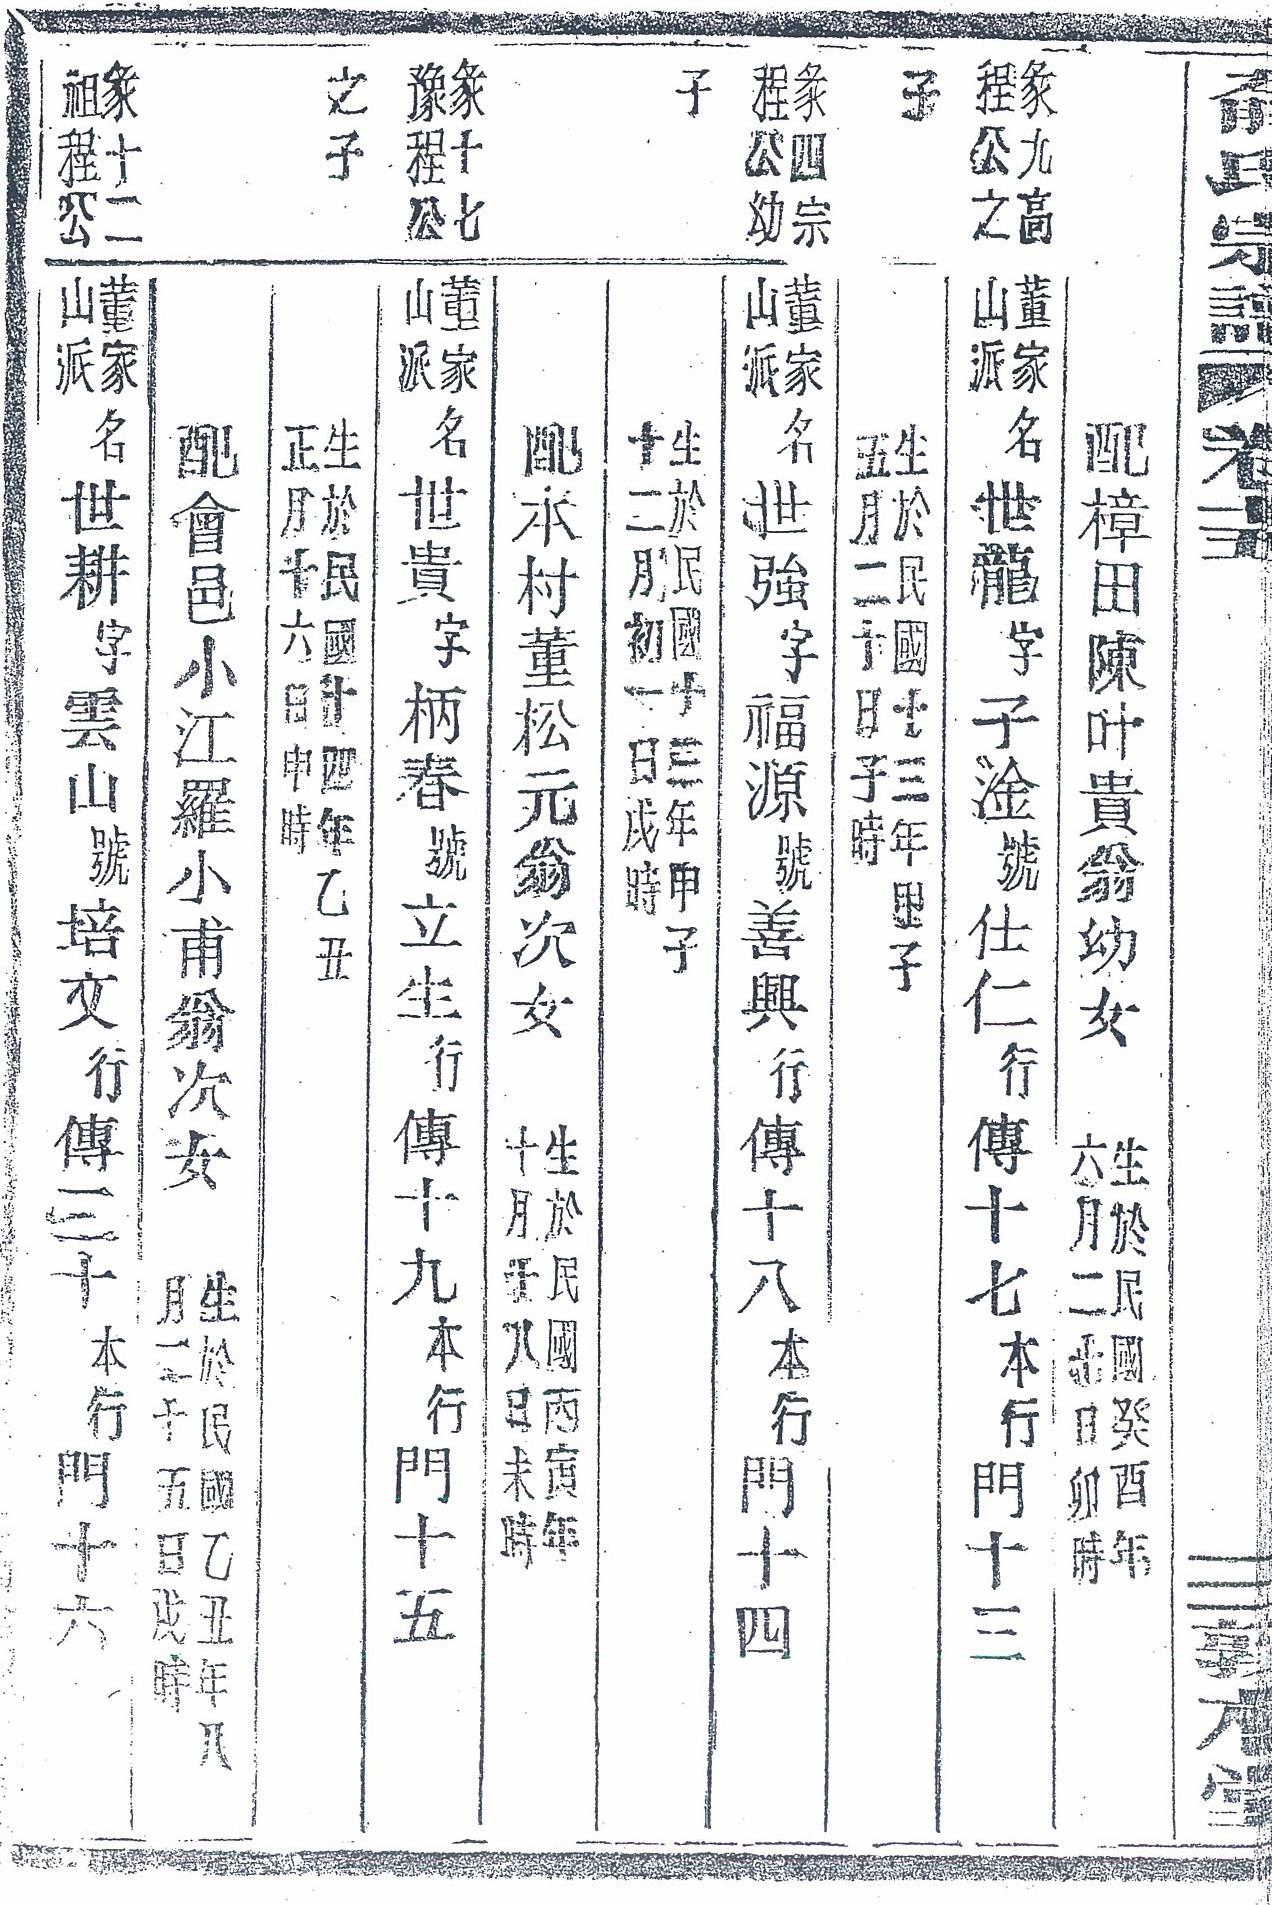 俞氏宗譜 卷三 敦本堂
配樟田陳叶貴翁幼女 生於民國癸酉年六月二十日卯時
彖九高程公之子
董家山派 名世龍字子淦號仕仁行傳十七本行門十三
生於民國十三年甲子五月二十日子時
彖四宗程公幼子
董家山派 名世強字福源號善興行傳十八本行門十四
生於民國十三年甲子十二月初一日戌時
配水村董松元翁次女 生於民國丙寅年十月十八日未時
彖十七豫程公之子
董家山派 名世貴字柄春號立生行傳十九本行門十五
生於民國十四年乙丑正月十六日申時
配會邑小江羅小甫翁次女 生於民國乙丑年八月二十五日戌時
彖十二祖程公
董家山派 名世耕字雲山號培文行傳三十本行門十六